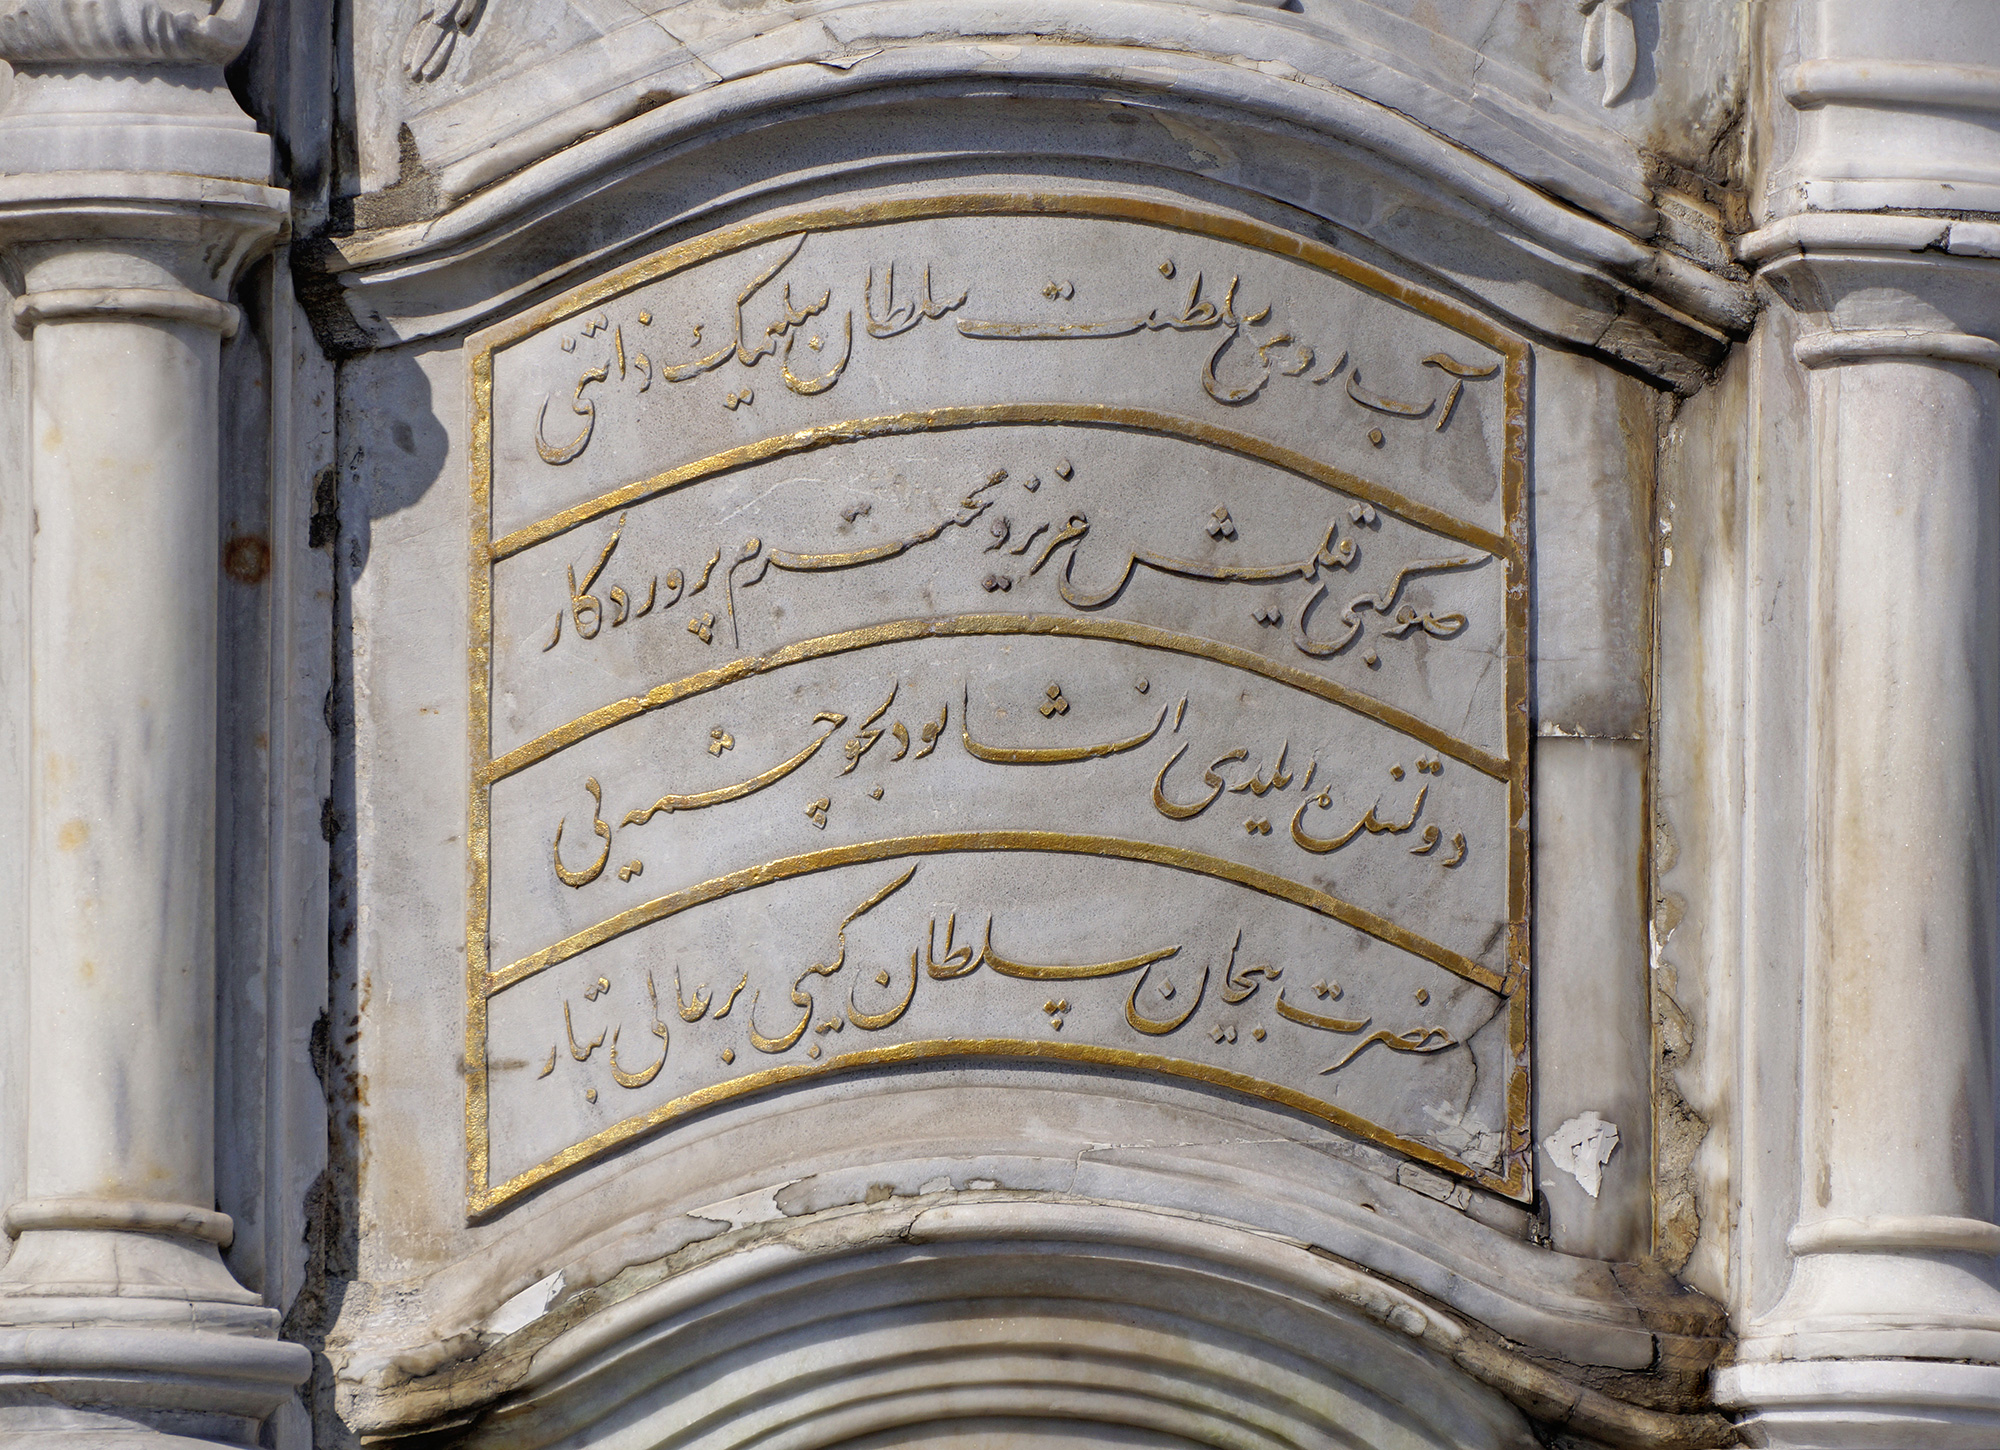 آب روی سلطنت سلطان سلیمك ذاتنی
صو كبی قلمش عزیز و محترم پروردكار
دولتنده ایلدی انشا بو دلجو چشمه یی
حضرت بیجان سلطان كیبی بر عالی تبار